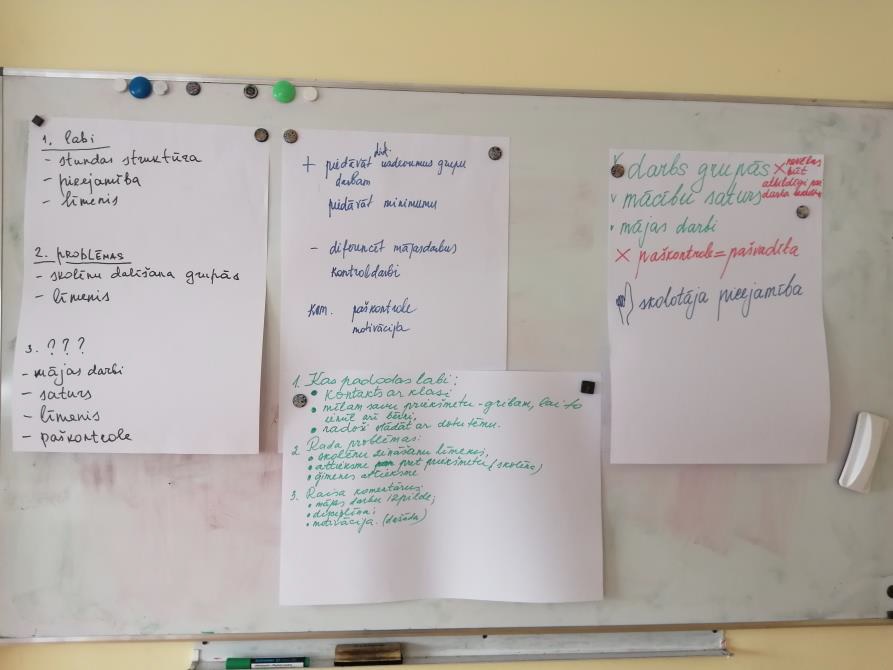 1. labi
- stundas struktūra
- pieejamība
- līmenis
2. PROBLĒMAS
- skolēnu dalīšana grupās
- līmenis
3. ? ? ?
- mājas darbi
- saturs
- līmenis
- paškontrole
+ piedāvāt uzdevumus grupu
darbam
piedāvāt minimumu
- difirencēt mājasdarbus
kontroldarbi
Kom. paškontrole
motivācija
1. Kas padodas labi:
• Kontakts ar klasi
• mīlam savu priekšmetu - gribam, lai to
arī bērni,
• radoši strādāt ar doto tēmu.
2 Rada problēmas:
• skolēnu zināšanu līmenis,
• attieksme pret priekšmetu (skolēns)
• ģimenes attieksme
3. Raisa komentārus:
• mājas darbu izpilde;
• disciplīna;
• motivācija. (dažāda)
v darbs grupās X nevēlas
būt
atbildīgi par
darba
v mācību saturs
• mājas darbi
X paškontrole = pašvadīta
skolotāja pieejamība